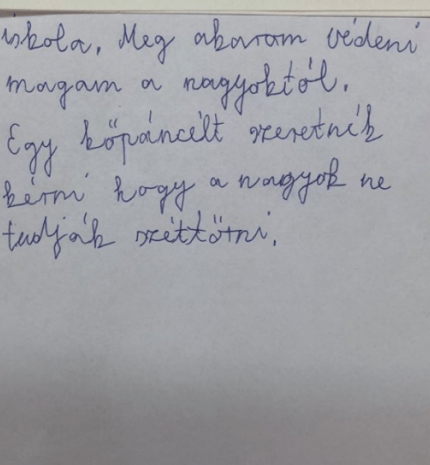 iskola, Meg akarom védeni
magam a nagyoktól.
Egy kőpáncélt szeretnék
kérni hogy a nagyok ne
tudják széttötni.